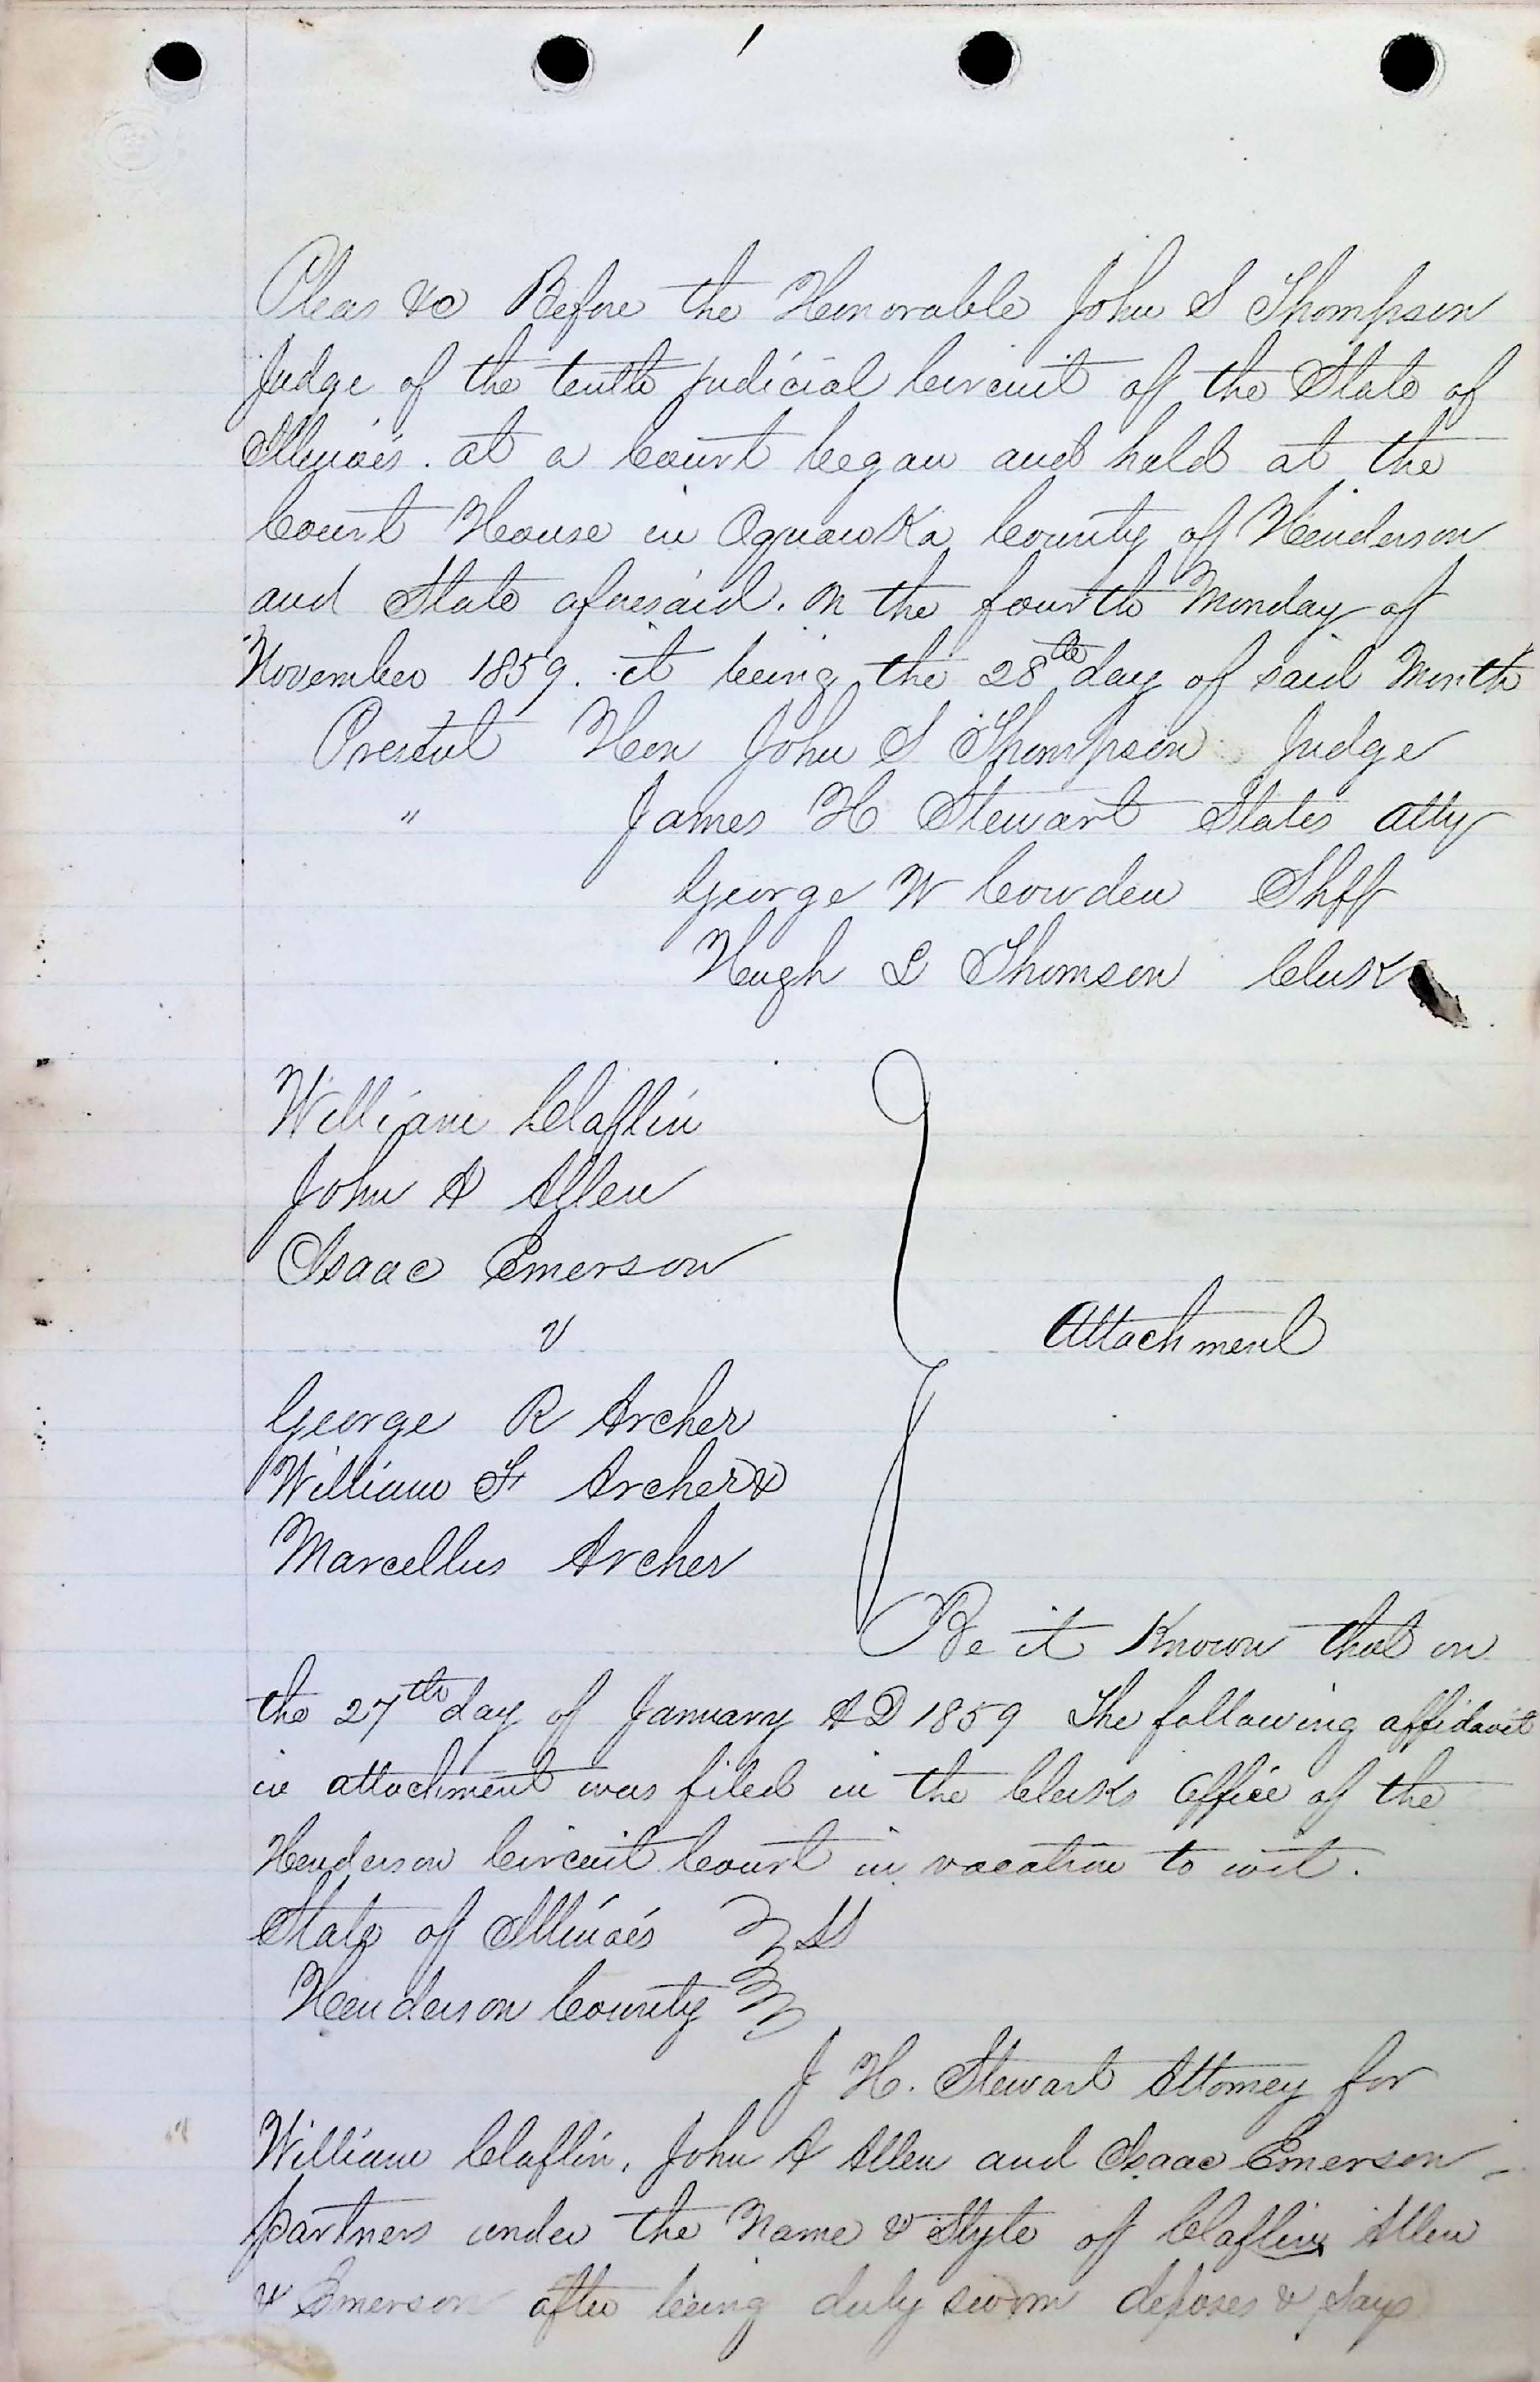 Pleas &c Before the Honorable John S Thompson
Judge of the tenth judicial Circuit of the State of
Illinois. at a Court began and held at the
Court House in Oquawka County of Henderson
and State aforesaid. on the fourth Monday of
November 1859. it being the 28th day of said Month
Present Hon John S Thompson Judge
" James H Stewart States Atty
George W Cowden Shff
Hugh L Thomson Clerk
William Claflin
John A Allen
Isaac Emerson
v
Attachment
George R Archer
William F Archer &
Marcellus Archer
Be it Known that on
the 27th day of January AD 1859 The following affidavit
in attachment was filed in the Clerks Office of the
Henderson Circuit Court in vacation to wit.
State of Illinois } SS
Henderson County }
J H. Stewart Attorney for
William Claflin, John A Allen and Isaac Emerson
partners under the Name & Style of Claflin Allen
& Emerson after being duly sworn deposes & says